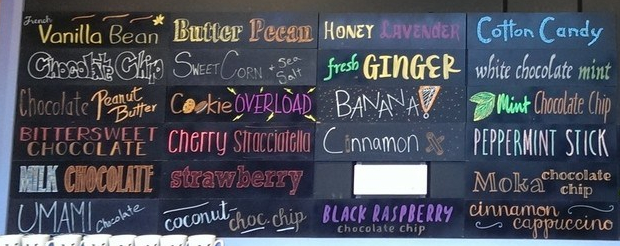 French
Vanilla Bean
Chocolate Chip
Chocolate Peanut
Butter
BITTERSWEET
CHOCOLATE
MILK CHOCOLATE
UMAMI Chocolate
Butter Pecan
SWEET CORN + Sea
Salt
Cookie OVERLOAD
Cherry Stracciatella
strawberry
coconut choc chip
HONEY LAVENDER
fresh GINGER
BANANA!
Cinnamon
BLACK RASPBERRY
chocolate chip
Cotton Candy
white chocolate mint
Mint Chocolate Chip
PEPPERMINT STICK
Moka chocolate
chip
cinnamon
cappuccino